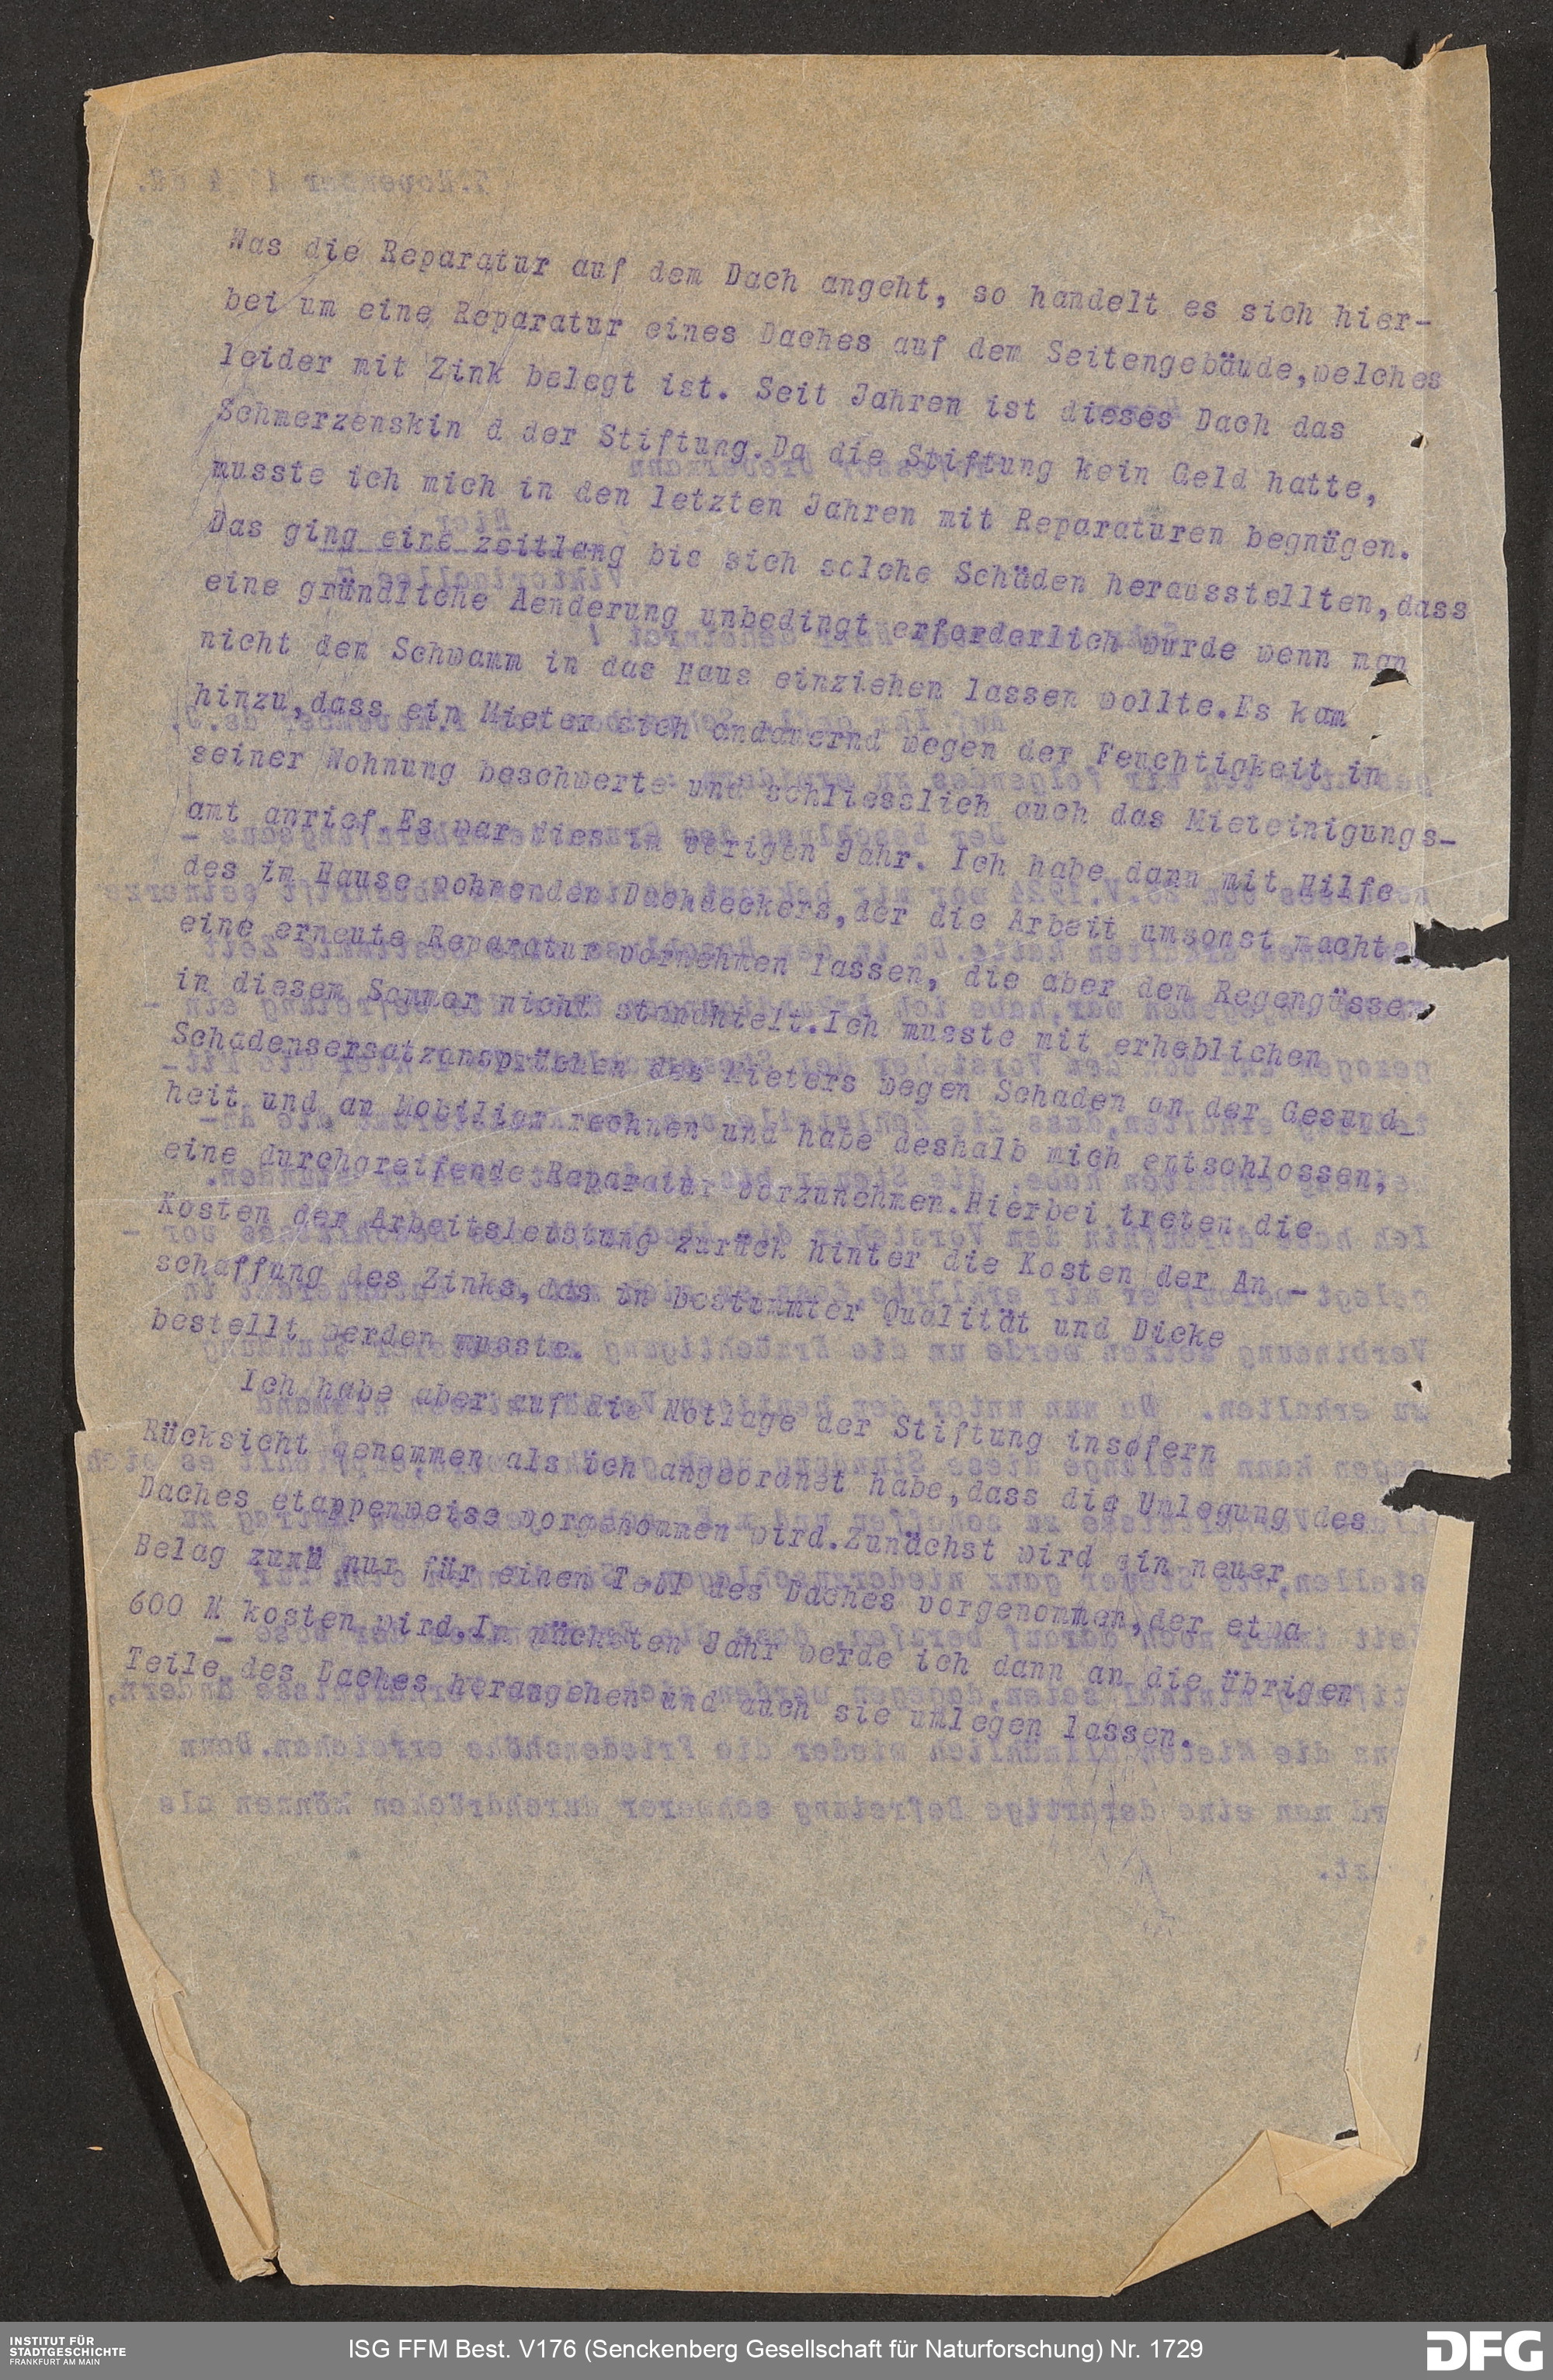 Was die Reparatur auf dem Dach angeht, so handelt es sich hier-
bei um eine Reparatur eines Daches auf dem Seitengebäude,welches
leider mit Zink belegt ist. Seit Jahren ist dieses Dach das
Schmerzenskin d der Stiftung.Da die Stiftung kein Geld hatte,
musste ich mich in den letzten Jahren mit Reparaturen begnügen.
Das ging eine zeitlang bis sich solche Schäden herausstellten,dass
eine gründliche Aenderung unbedingt erforderlich wurde wenn man
nicht den Schwamm in das Haus einziehen lassen wollte.Es kam
hinzu,dass ein Mieter sich andauernd wegen der Feuchtigkeit in
seiner Wohnung beschwerte und schliesslich auch das Mieteinigungs-
amt anrief.Es war dies im vorigen Jahr. Ich habe dann mit Hilfe
des im Hause wohnenden Dachdeckers,der die Arbeit umsonst machte
eine erneute Reparatur vornehmen lassen, die aber den Regengüssen
in diesem Sommer nicht standhielt.Ich musste mit erheblichen
Schadensersatzansprüchen des Mieters wegen Schaden an der Gesund_
heit und an Mobiliar rechnen und habe deshalb mich entschlossen,
eine durchgreifende Reparatur vorzunehmen.Hierbei treten die
Kosten der Arbeitsleistung zurück hinter die Kosten der An _
schaffung des Zinks,das in bestimmter Qualität und Dicke
bestellt werden musste.
Ich habe aber auf die Notlage der Stiftung insofern
Rücksicht genommen als ich angeordnet habe,dass die Umlegung des
Daches etappenweise vorgenommen wird.Zunächst wird ein neuer
Belag zunä nur für einen Teil des Daches vorgenommen,der etwa
600 M kosten wird.In nächsten Jahr werde ich dann an die übrigen
Teile des Daches herangehen und auch sie umlegen lassen.
INSTITUT FÜR
STADTGESCHICHTE
FRANKFURT AM MAIN
ISG FFM Best. V176 (Senckenberg Gesellschaft für Naturforschung) Nr. 1729
DFG